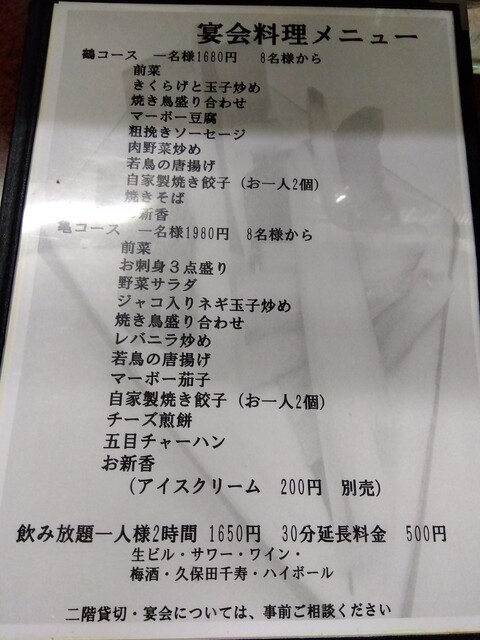 宴会料理メニュー
鶴コース 一名様1680円 8名様から
前菜
きくらげと玉子炒め
焼き鳥盛り合わせ
マーボー豆腐
粗挽きソーセージ
肉野菜炒め
若鳥の唐揚げ
自家製焼き餃子（お一人2個）
焼きそば
お新香
亀コース 一名様1980円 8名様から
前菜
お刺身３点盛り
野菜サラダ
ジャコ入りネギ玉子炒め
焼き鳥盛り合わせ
レバニラ炒め
若鳥の唐揚げ
マーボー茄子
自家製焼き餃子（お一人2個）
チーズ煎餅
五目チャーハン
お新香
（アイスクリーム 200円 別売）
飲み放題一人様2時間 1650円 30分延長料金 500円
生ビル・サワー・ワイン・
梅酒・久保田千寿・ハイボール
二階貸切・宴会については、事前ご相談ください